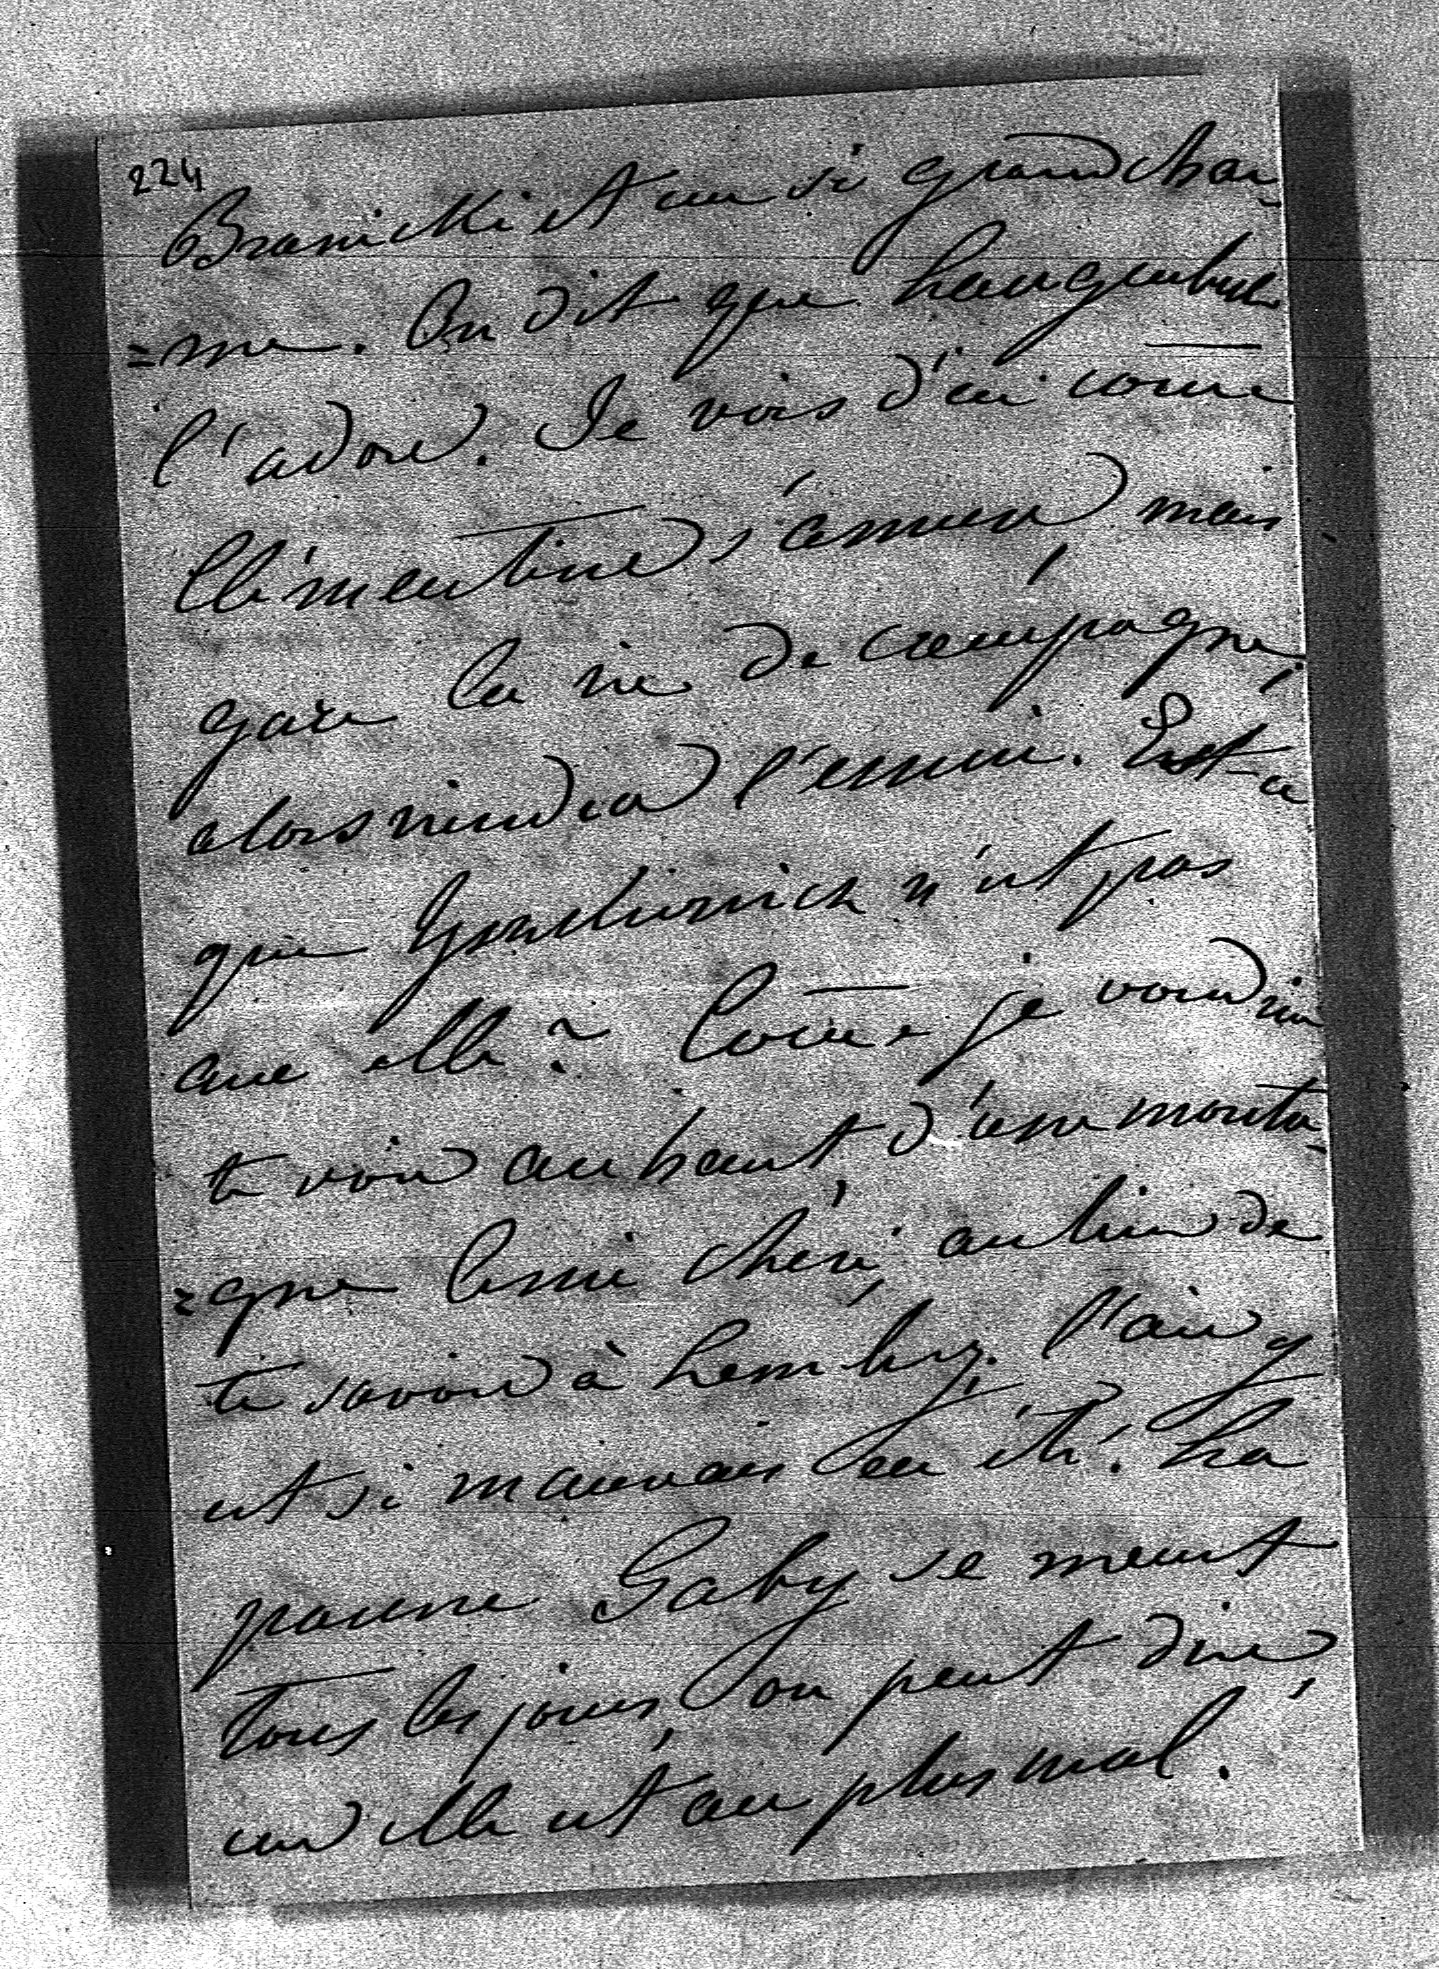 224
Branicki et un si grand char-
=me. On dit que
l'adore. Je vois d'ici come
Clémentine s'amuse mais
gare la vie de campagne,
alors viendra l'ennui. Est-ce
que n'est pas
avec elle? Come je voudrais
te voir au haut d'une monta-
=gne Cerni chéri, au lieu de
te savoir à Lemberg. l'air y
est si mauvais en été. La
pauvre Gaby se meurt
tous les jours on peut dire,
car elle est au plus mal.